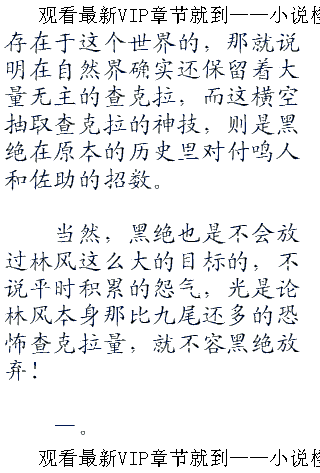 观看最新VIP章节就到——小说
存在于这个世界的，那就说
明在自然界确实还保留着大
量无主的查克拉，而这横空
抽取查克拉的神技，则是黑
绝在原本的历史里对付鸣人
和佐助的招数。
当然，黑绝也是不会放
过林风这么大的目标的，不
说平时积累的怨气，光是论
林风本身那比九尾还多的恐
怖查克拉量，就不容黑绝放
弃！
一。
观看最新VIP章节就到——小说